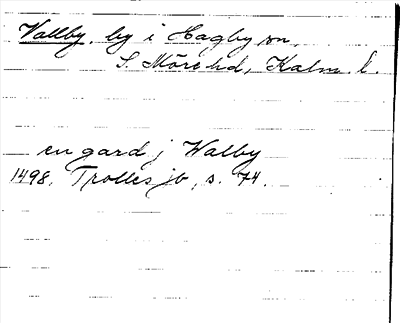 Vallby, by i Hagby sn,
S. Möre hd, Kalm. l.
en gard j Walby
1498, Trolles jb, s. 74.